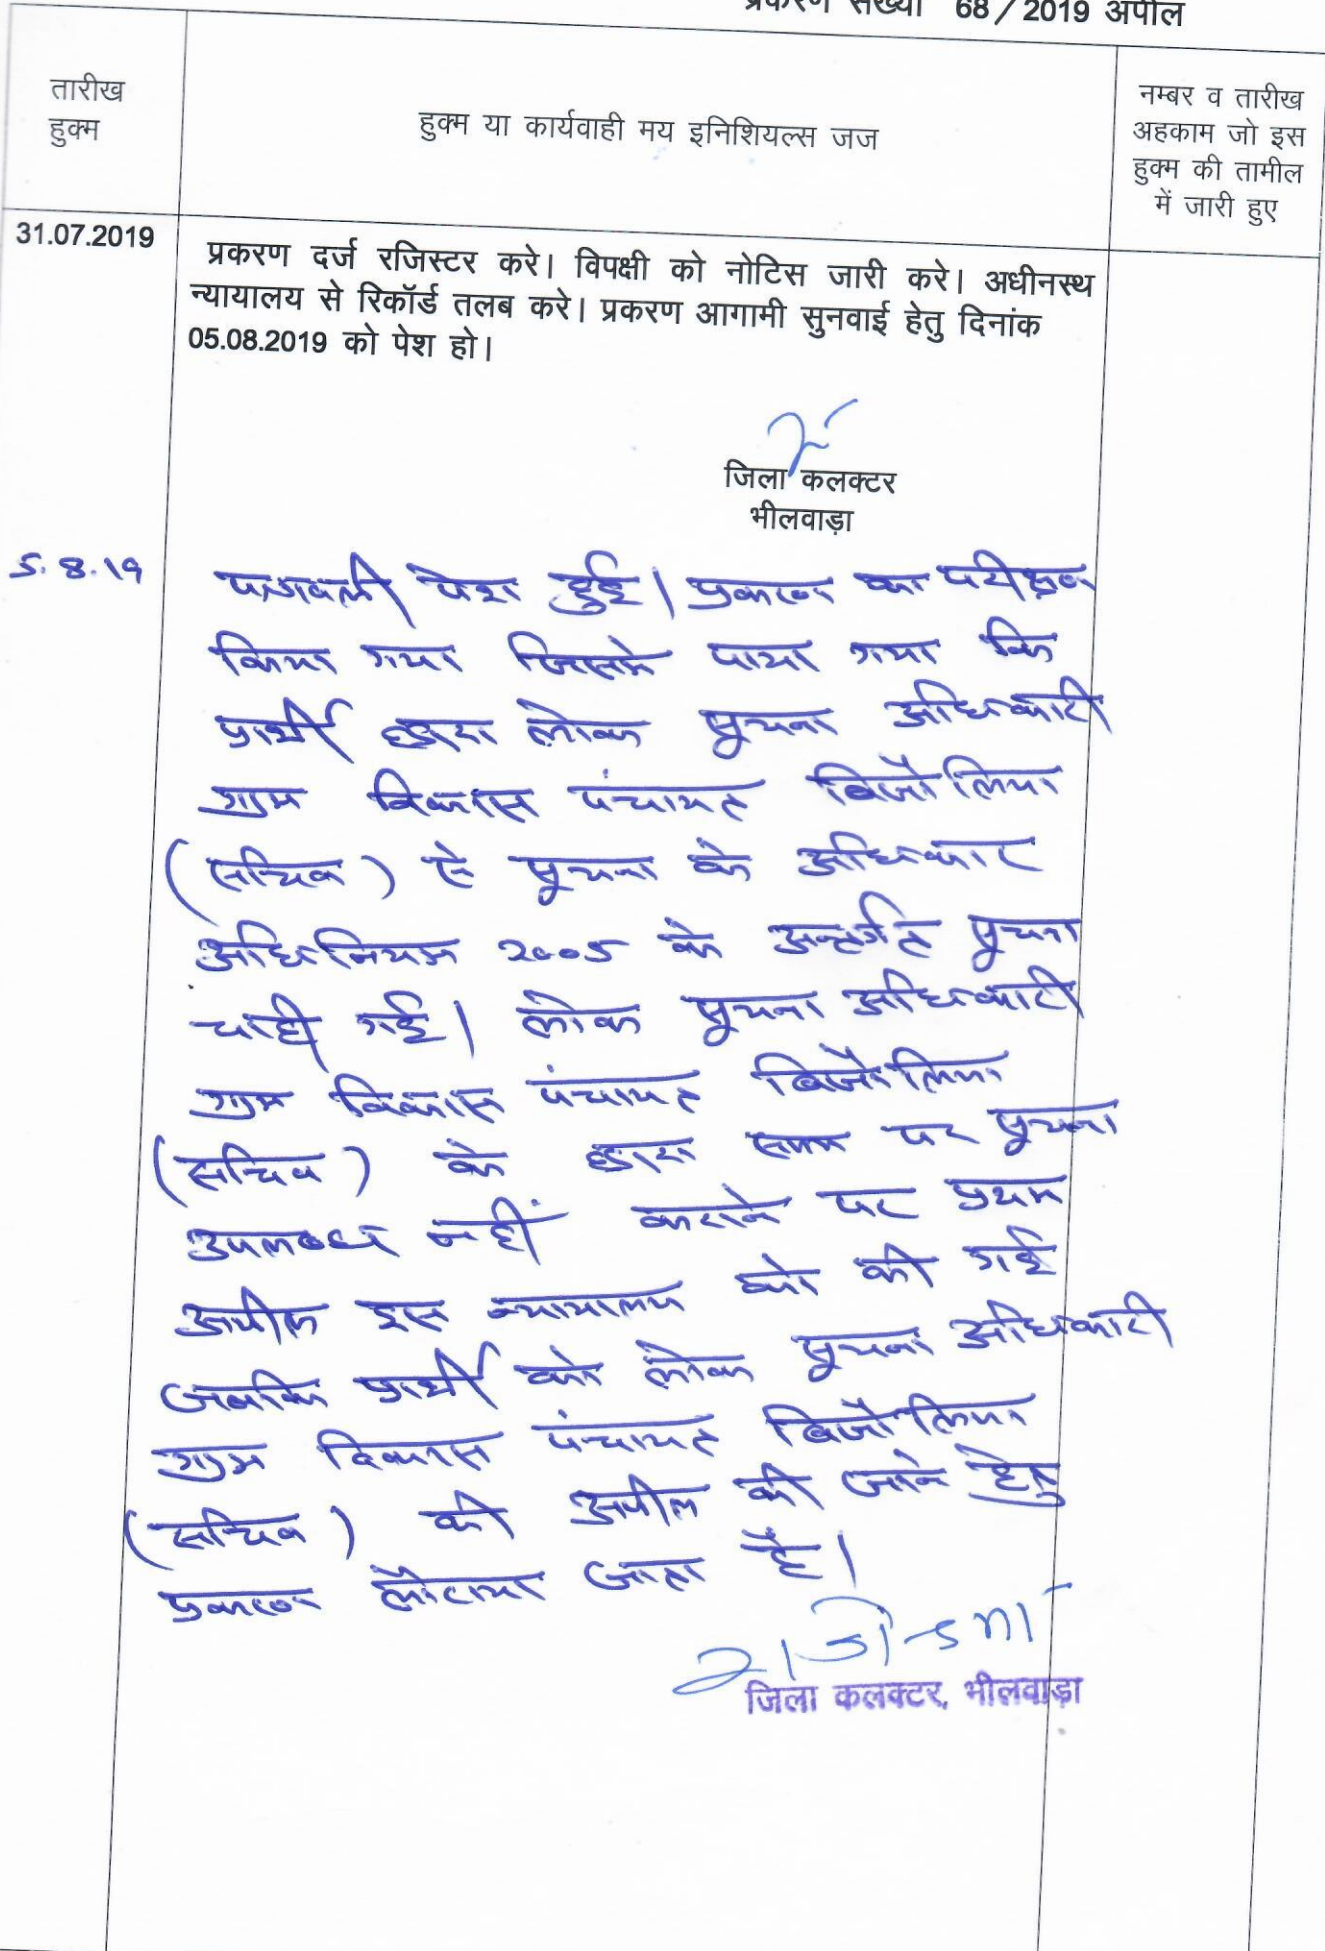 प्रकरण संख्या 68/2019 अपील
तारीख
हुक्म
हुक्म या कार्यवाही मय इनिशियल्स जज
नम्बर व तारीख
अहकाम जो इस
हुक्म की तामील
में जारी हुए
31.07.2019
प्रकरण दर्ज रजिस्टर करे। विपक्षी को नोटिस जारी करे। अधीनस्थ
न्यायालय से रिकॉर्ड तलब करे। प्रकरण आगामी सुनवाई हेतु दिनांक
05.08.2019 को पेश हो।
जिला कलक्टर
भीलवाड़ा
5.8.19
पत्रावली पेश हुई। प्रकरण का परीक्षण
किया गया जिसमे पाया गया कि
प्रार्थी द्वारा लोक सूचना अधिकारी
ग्राम विकास पंचायत बिजौलिया
(सचिव) से सूचना के अधिकार
अधिनियम 2005 के अन्तर्गत सूचना
चाही गई। लोक सूचना अधिकारी
ग्राम विकास पंचायत बिजौलिया
(सचिव) के द्वारा समय पर सूचना
उपलब्ध नहीं कराने पर प्रथम
अपील इस न्यायालय को की गई
जबकि प्रार्थी को लोक सूचना अधिकारी
ग्राम विकास पंचायत बिजौलिया
(सचिव) की अपील की जाने हेतु
प्रकरण लौटाया जाता है।
जिला कलक्टर, भीलवाड़ा